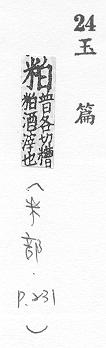 24 玉篇
粕 普各切糟
粕酒滓也
(米部.
P.231)